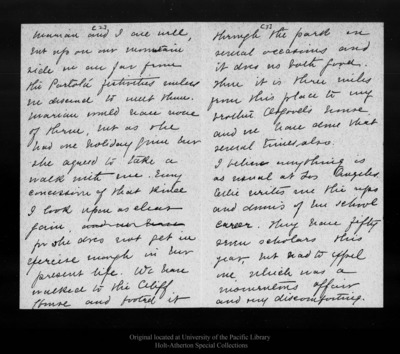 [2]
Marian and I are well,
but up on our mountain
side we are far from
the Portolá festivities unless
we descend to meet them.
Marian would have none
of them, but as she
had one holiday from her
she agreed to take a
walk with me. Every
concession of that kind
I look upon as clear
gain,
for she does not get in
exercise enough in her
present life. We have
walked to the Cliff
House and footed it
[3]
through the park on
several occasions and
it does us both good.
Then it is three miles
from this place to my
brother Osgood's house
and we have done that
several times, also.
I believe everything is
as usual at Los Angeles.
writes me the ups
and downs of her school
career. They have fifty
seven scholars this
year, but had to expel
one, which was a
momentous affair
and very discomforting.
Original located at University of the Pacific Library
Holt-Atherton Special Collections